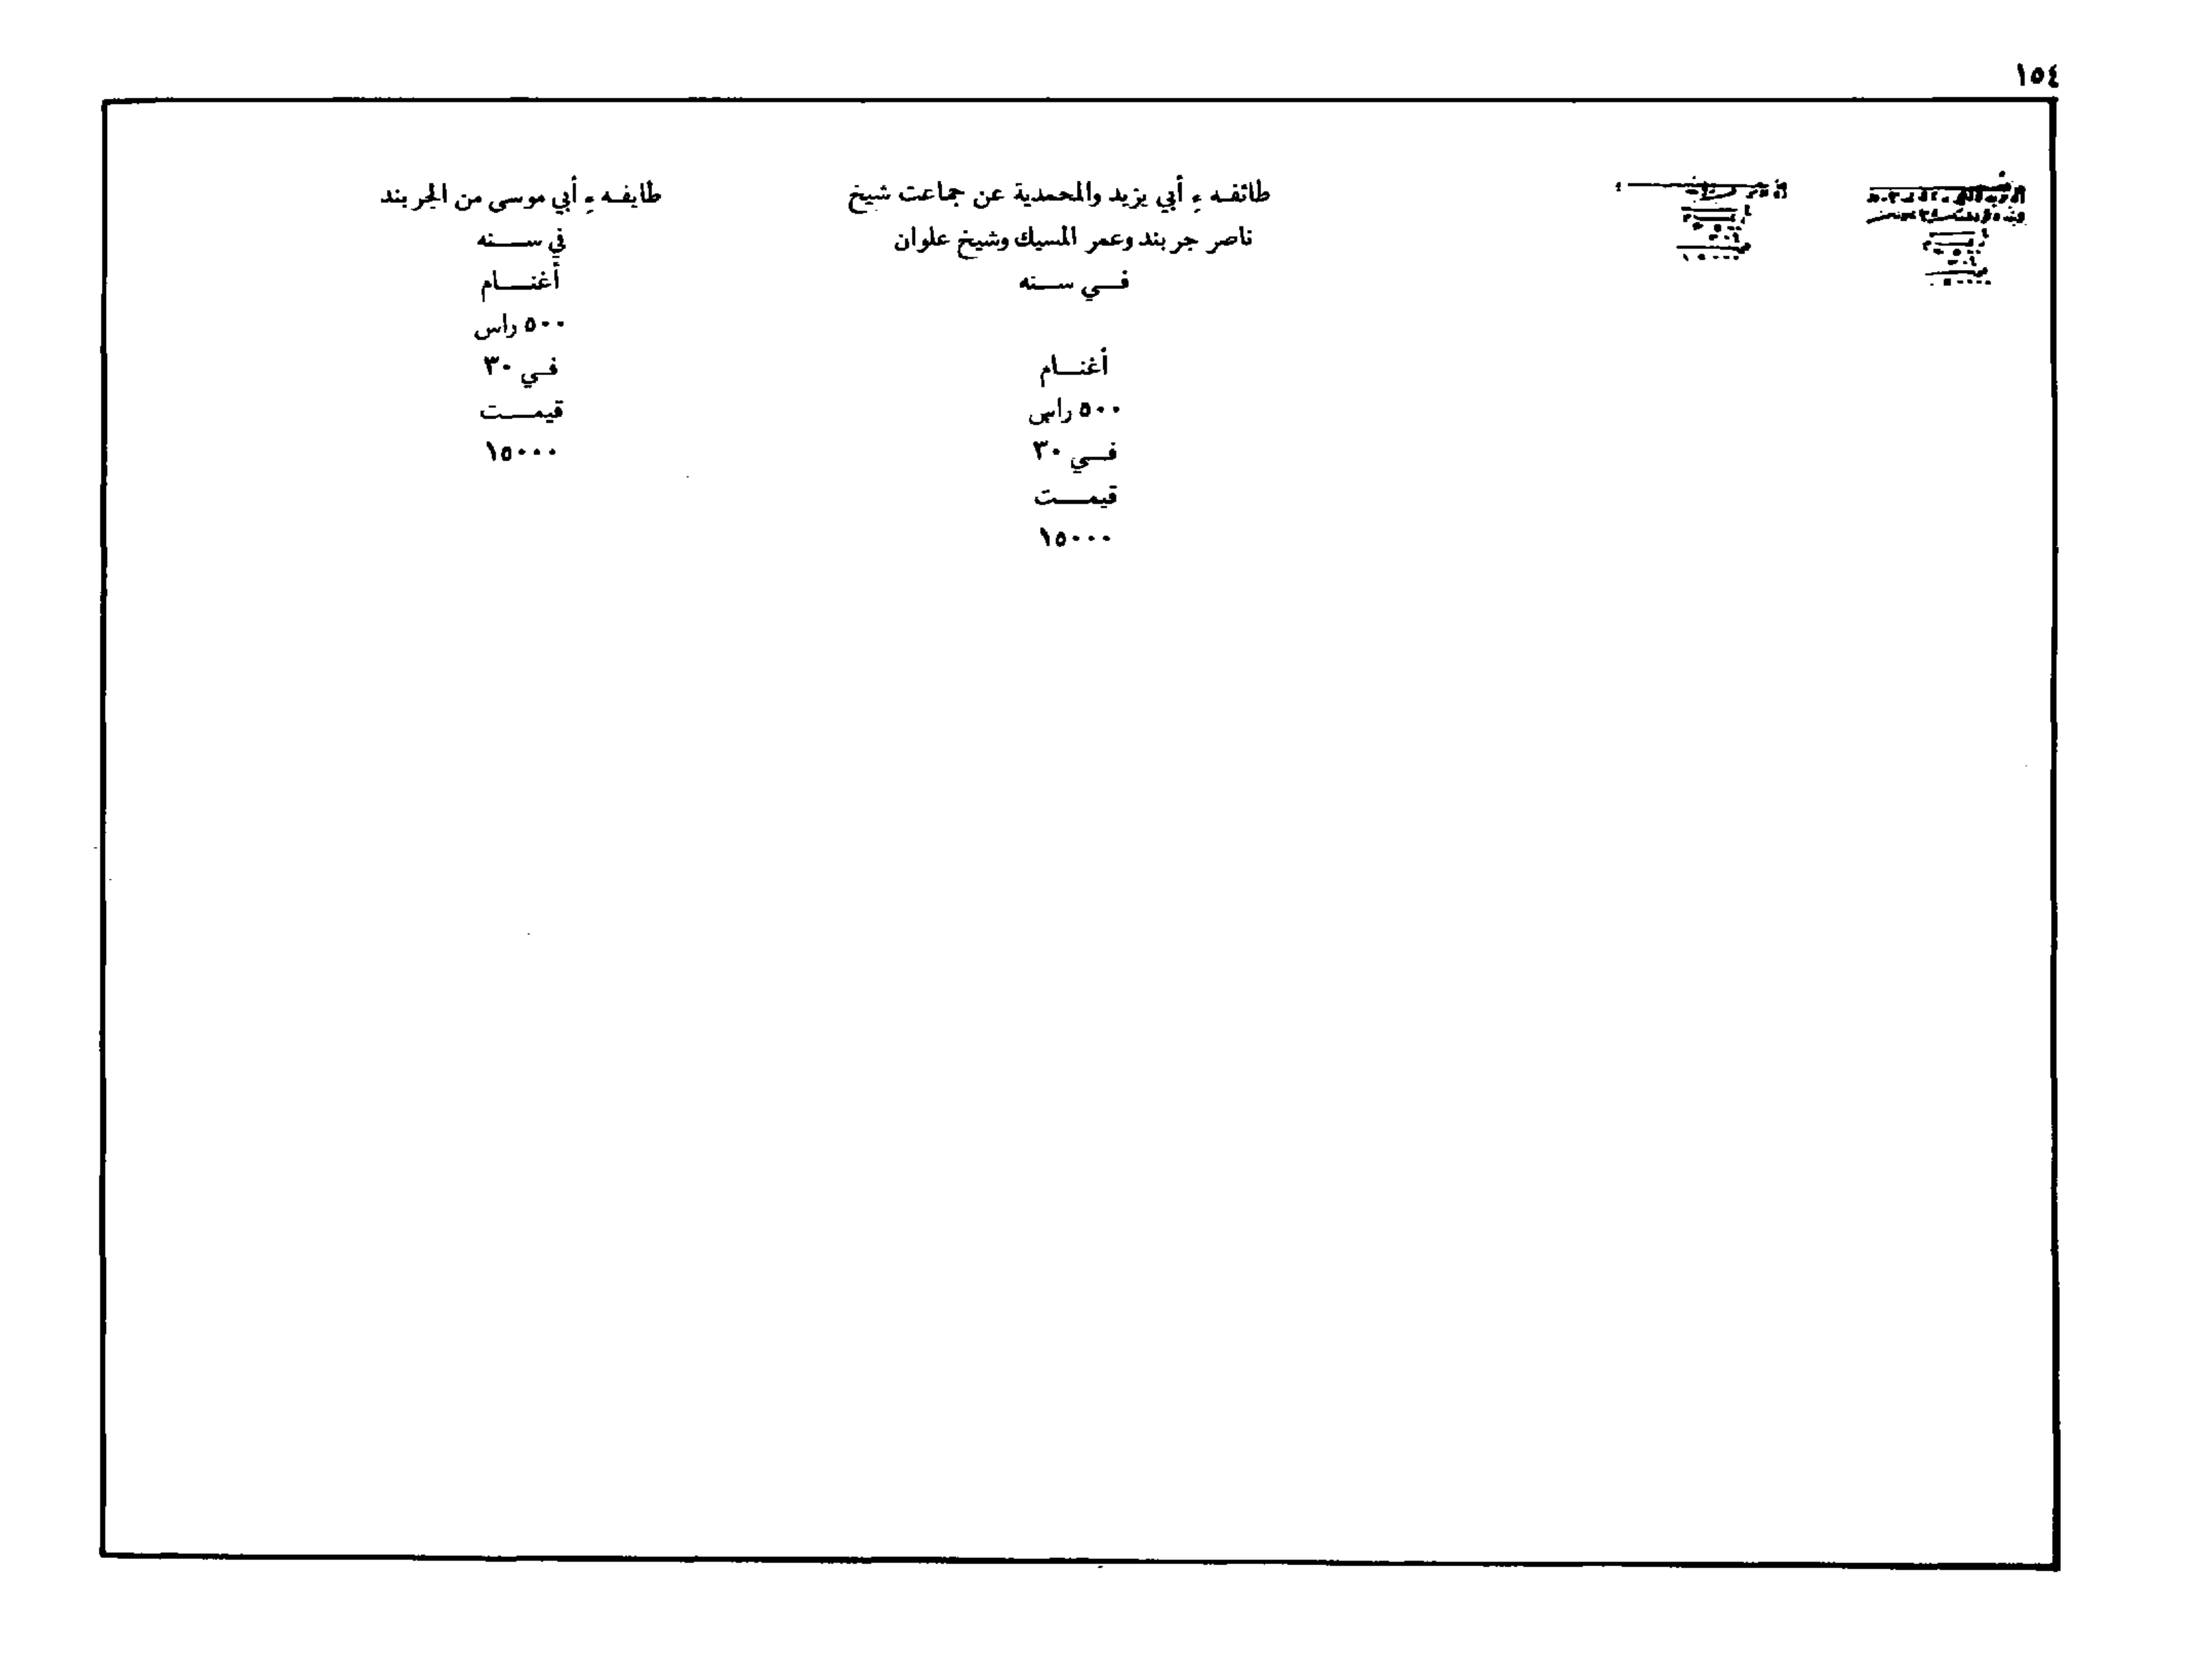 ١٥٤
طائفه ء أبي يزيد والمحمدية عن جماعت شيخ
ناصر جربند وعمر المسيك وشيخ علوان
في سنه
أغنام
٥٠٠ راس
في ٣٠
قيمت
١٥٠٠٠
طايفه ء أبي موسى من الجربند
في سنه
أغنام
٥٠٠ راس
في ٣٠
قيمت
١٥٠٠٠